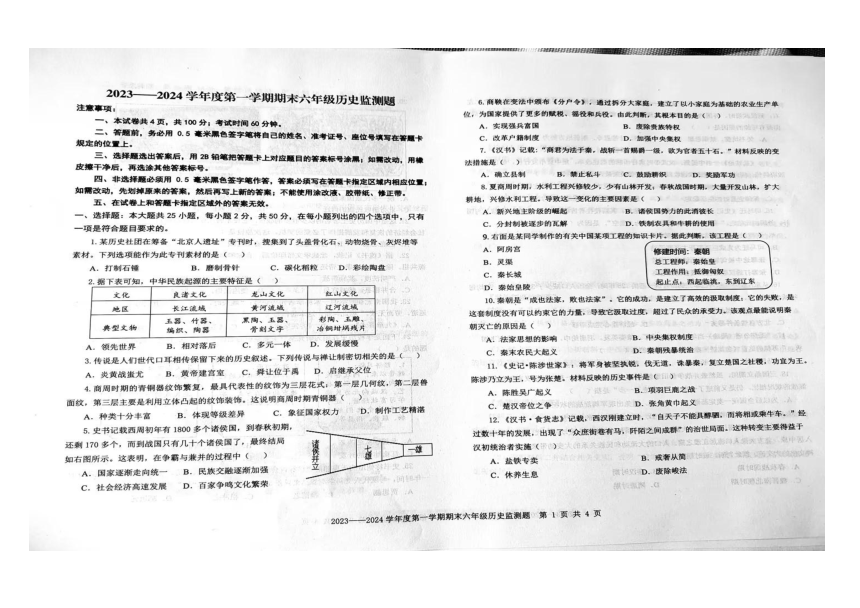 2023——2024 学年度第一学期期末六年级历史监测题
注意事项：
一、本试卷共 4 页，共 100 分；考试时间 60 分钟。
二、答题前，务必用 0.5 毫米黑色签字笔将自己的姓名、准考证号、座位号填写在答题卡
规定的位置上。
三、选择题选出答案后，用 2B 铅笔把答题卡上对应题目的答案标号涂黑；如需改动，用橡
皮擦干净后，再选涂其他答案标号。
四、非选择题必须用 0.5 毫米黑色签字笔作答，答案必须写在答题卡指定区域内相应位置；
如需改动，先划掉原来的答案，然后再写上新的答案；不能使用涂改液、胶带纸、修正带。
五、在试卷上和答题卡指定区域外的答案无效。
一、选择题：本大题共 25 小题，每小题 2 分，共 50 分，在每小题列出的四个选项中，只有
一项是符合题目要求的。
1.某历史社团在筹备“北京人遗址”专刊时，搜集到了头盖骨化石、动物烧骨、灰烬堆等
素材，下列选项能作为此专刊素材的是（ ）
A．打制石锤 B．磨制骨针 C．碳化稻粒 D．彩绘陶盘
2.据下表可知，中华民族起源的主要特征是（ ）
文化 良渚文化 龙山文化 红山文化
地区 长江流域 黄河流域 辽河流域
典型文物 玉器、竹器、编织、陶器 黑陶、玉器、骨刻文字 彩陶、玉雕、冶铜坩埚残片
A．领先世界 B．相对落后 C．多元一体 D．发展缓慢
3.传说是人们世代口耳相传保留下来的历史叙述。下列传说与禅让制密切相关的是（ ）
A．炎黄战蚩尤 B．黄帝建宫室 C．舜让位于禹 D．启继承父位
4.商周时期的青铜器纹饰繁复，最具代表性的纹饰为三层花式，第一层几何纹，第二层兽
面纹，第三层主要是利用立体凸起的纹饰装饰。这说明商周时期青铜器（ ）
A．种类十分丰富 B．体现等级差异 C．象征国家权力 D．制作工艺精湛
5.史书记载西周初年有 1800 多个诸侯国，到春秋初期，
还剩 170 多个，而到战国只有几十个诸侯国了，最终结局
如右图所示。这表明，在争霸与兼并的过程中（ ）
诸侯并立 七雄 一雄
A．国家逐渐走向统一 B．民族交融逐渐加强
C．社会经济高速发展 D．百家争鸣文化繁荣
6.商鞅在变法中颁布《分户令》，通过拆分大家庭，建立了以小家庭为基础的农业生产单
位，为国家提供了更多的赋税、徭役和兵役。由此判断，其根本目的是（ ）
A．实现强兵富国 B．废除贵族特权
C．改革户籍制度 D．加强中央集权
7.《汉书》记载：“商君为法于秦，战斩一首赐爵一级，欲为官者五十石。”材料反映的变
法措施是（ ）
A．确立县制 B．禁止私斗 C．鼓励耕织 D．奖励军功
8.夏商周时期，水利工程兴修较少，少有山林开发；春秋战国时期，大量开发山林，扩大
耕地，兴修水利工程。导致这一变化的主要因素是（ ）
A．新兴地主阶级的崛起 B．诸侯国势力的此消彼长
C．分封制被逐步的瓦解 D．铁制农具和牛耕的使用
9.右面是某同学制作的有关中国某项工程的知识卡片。据此判断，该工程是（ ）
A．阿房宫
B．灵渠
C．秦长城
D．秦始皇陵
修建时间：秦朝
总工程师：秦始皇
工程作用：抵御匈奴
起止点：西起临洮，东到辽东
10.秦朝是“成也法家，败也法家”。它的成功，是建立了高效的汲取制度；它的失败，是
这套制度没有可以约束它的力量，导致它汲取过度，超过了民众的承受力。该观点最能说明秦
朝灭亡的原因是（ ）
A．法家思想的影响 B．中央集权制度
C．秦末农民大起义 D．秦朝残暴统治
11.《史记·陈涉世家》：将军身被坚执锐，伐无道，诛暴秦，复立楚国之社稷，功宜为王。
陈涉乃立为王，号为张楚。材料反映的历史事件是（ ）
A．陈胜吴广起义 B．项羽巨鹿之战
C．楚汉帝位之争 D．张角黄巾起义
12.《汉书·食货志》记载，西汉刚建立时，“自天子不能具醇驷，而将相或乘牛车。”经
过数十年的发展，出现了“众庶街巷有马，阡陌之间成群”的治世局面。这种转变主要得益于
汉初统治者实施（ ）
A．盐铁专卖 B．戒奢从简
C．休养生息 D．废除峻法
2023——2024 学年度第一学期期末六年级历史监测题 第 1 页 共 4 页